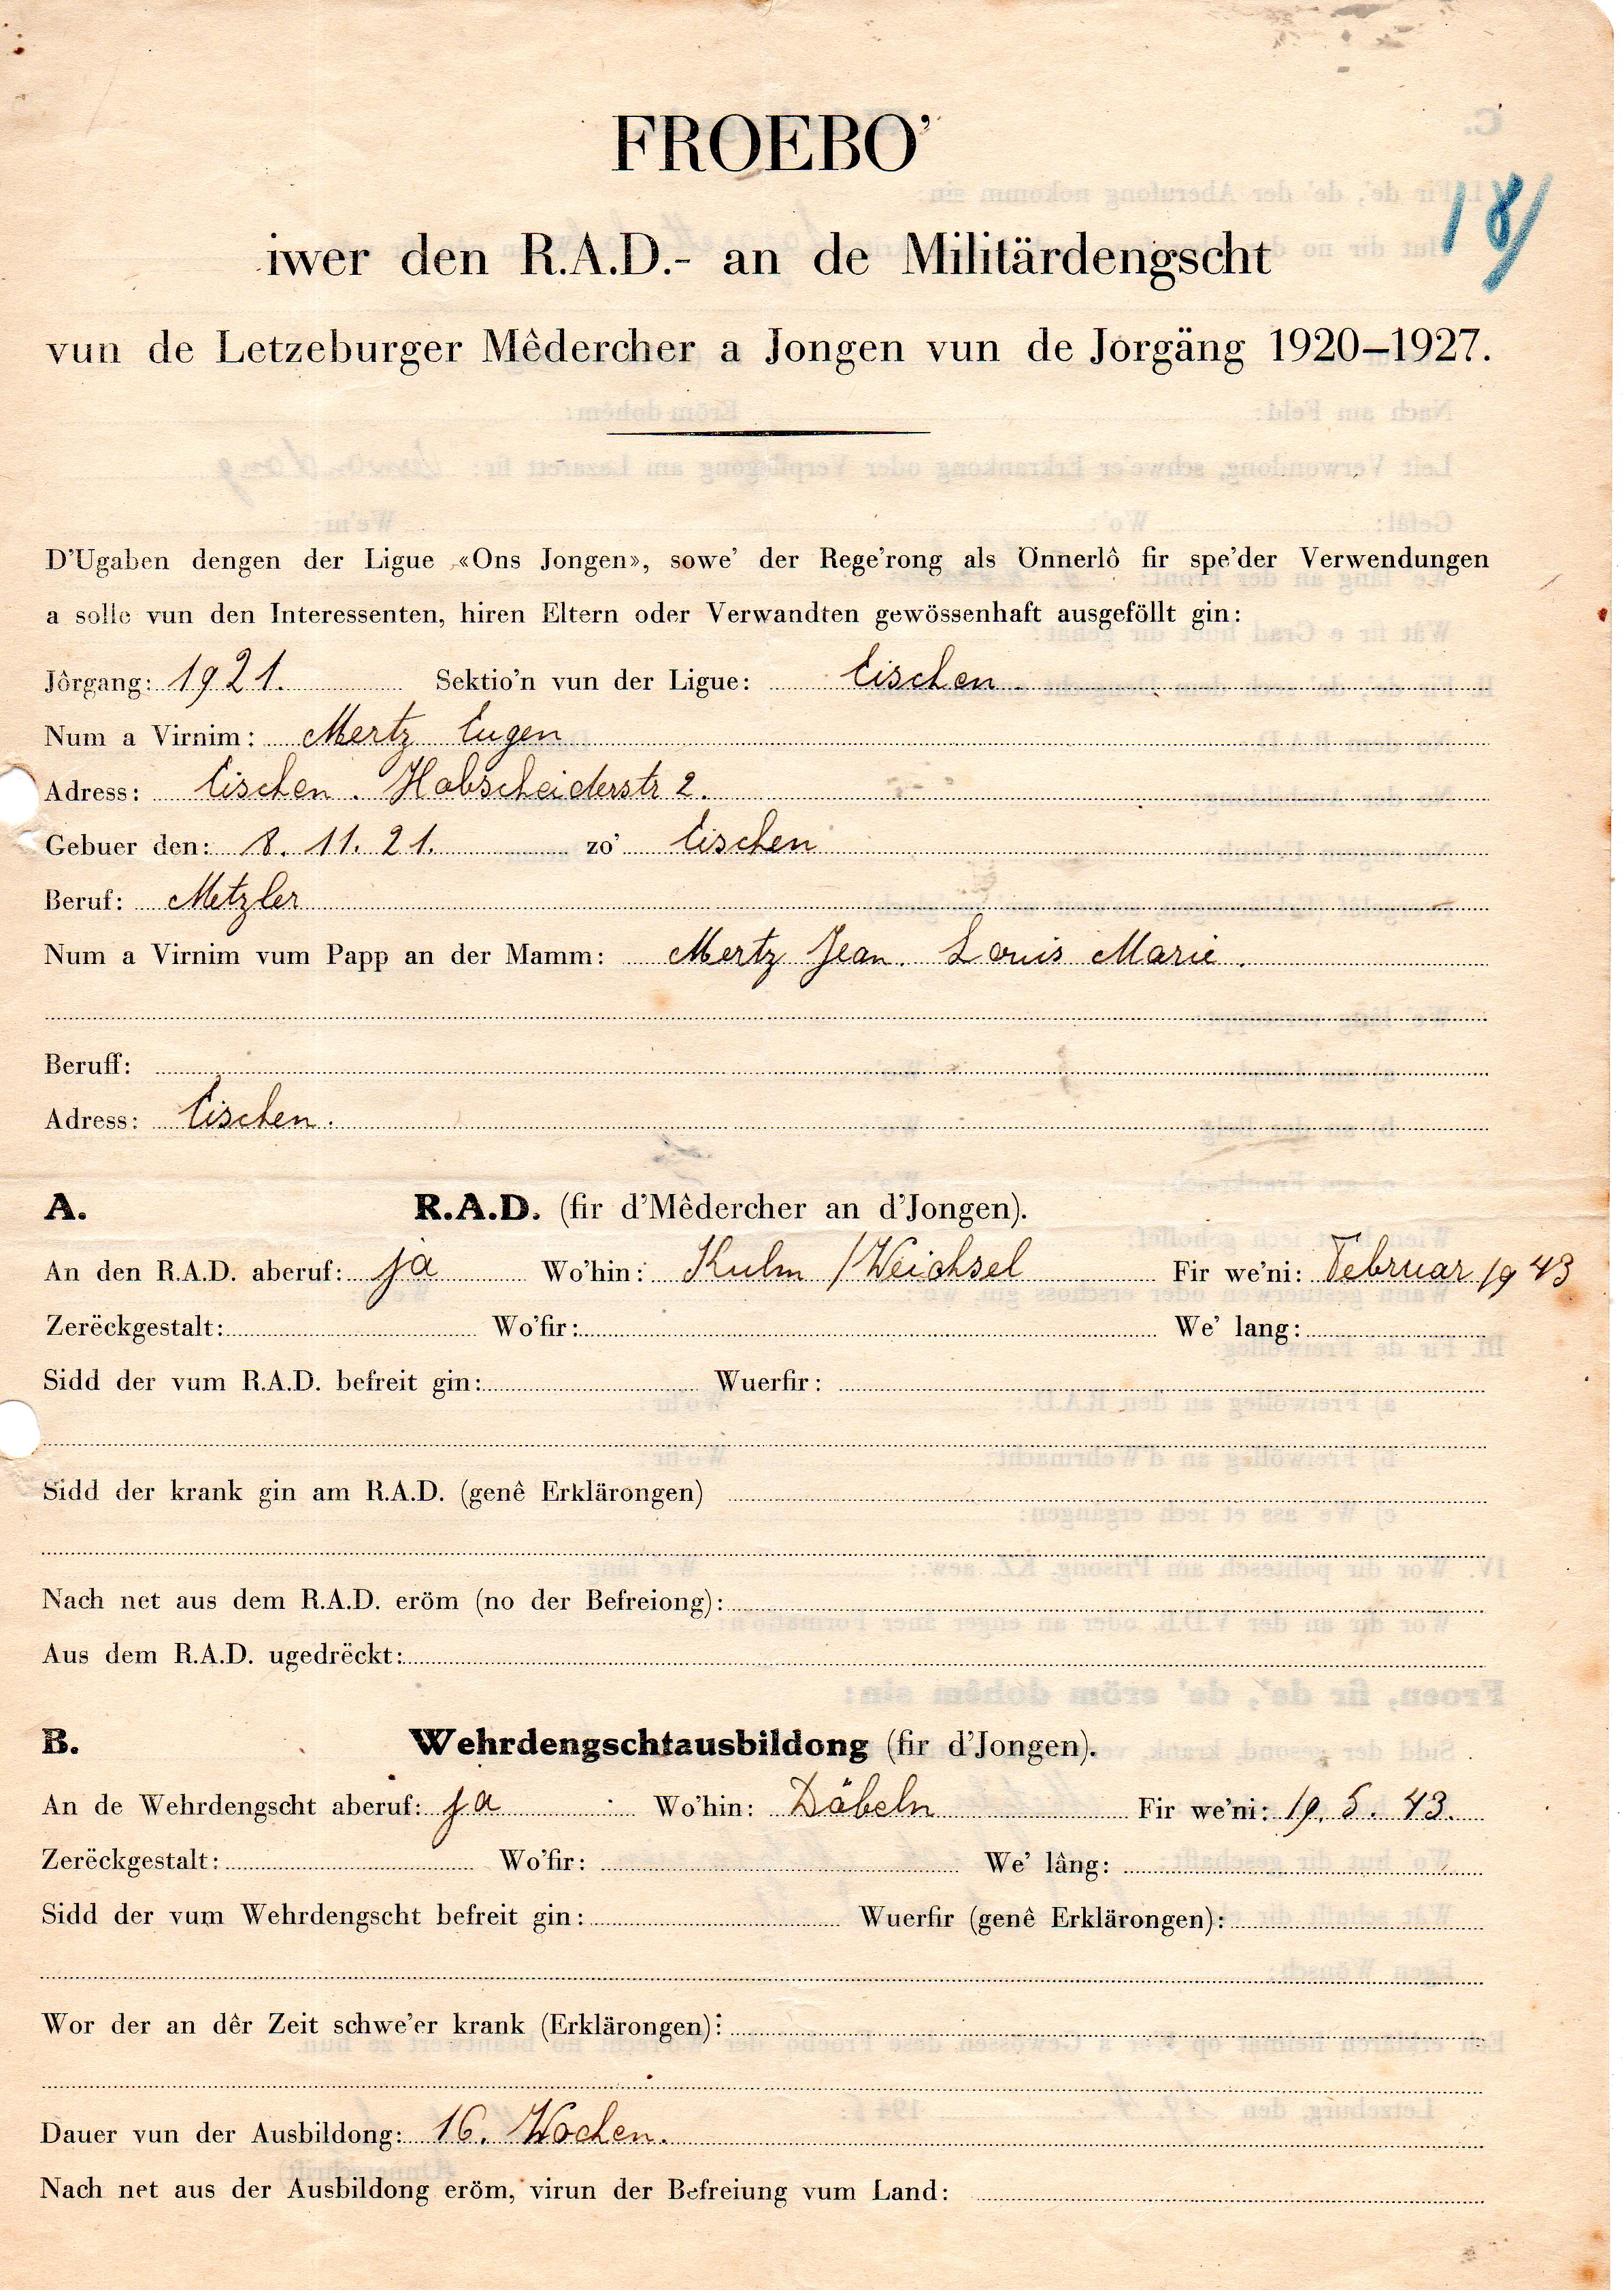 FROEBO'
18/
iwer den R.A.D.- an de Militärdengscht
vun de Letzeburger Mêdercher a Jongen vun de Jorgäng 1920–1927.
D'Ugaben dengen der Ligue «Ons Jongen», sowe' der Rege'rong als Önnerlô fir spe'der Verwendungen
a solle vun den Interessenten, hiren Eltern oder Verwandten gewössenhaft ausgeföllt gin:
Jôrgang: 1921. Sektio'n vun der Ligue: Eischen
Num a Virnim: Mertz Eugen
Adress: Eischen. Hobscheiderstr 2.
Gebuer den: 8. 11. 21. zo' Eischen
Beruf: Metzler
Num a Virnim vum Papp an der Mamm: Mertz Jean. Louis Marie.
Beruff:
Adress: Eischen.
A. R.A.D. (fir d'Mêdercher an d'Jongen).
An den R.A.D. aberuf: ja Wo'hin: Kulm / Weichsel Fir we'ni: Februar 1943
Zerëckgestalt: Wo'fir: We' lang:
Sidd der vum R.A.D. befreit gin: Wuerfir:
Sidd der krank gin am R.A.D. (genê Erklärongen)
Nach net aus dem R.A.D. eröm (no der Befreiong):
Aus dem R.A.D. ugedrëckt:
B. Wehrdengschtausbildong (fir d'Jongen).
An de Wehrdengscht aberuf: ja Wo'hin: Döbeln Fir we'ni: 19. 5. 43.
Zerëckgestalt: Wo'fir: We' lâng:
Sidd der vum Wehrdengscht befreit gin: Wuerfir (genê Erklärongen):
Wor der an dêr Zeit schwe'er krank (Erklärongen):
Dauer vun der Ausbildong: 16. Wochen.
Nach net aus der Ausbildong eröm, virun der Befreiung vum Land: